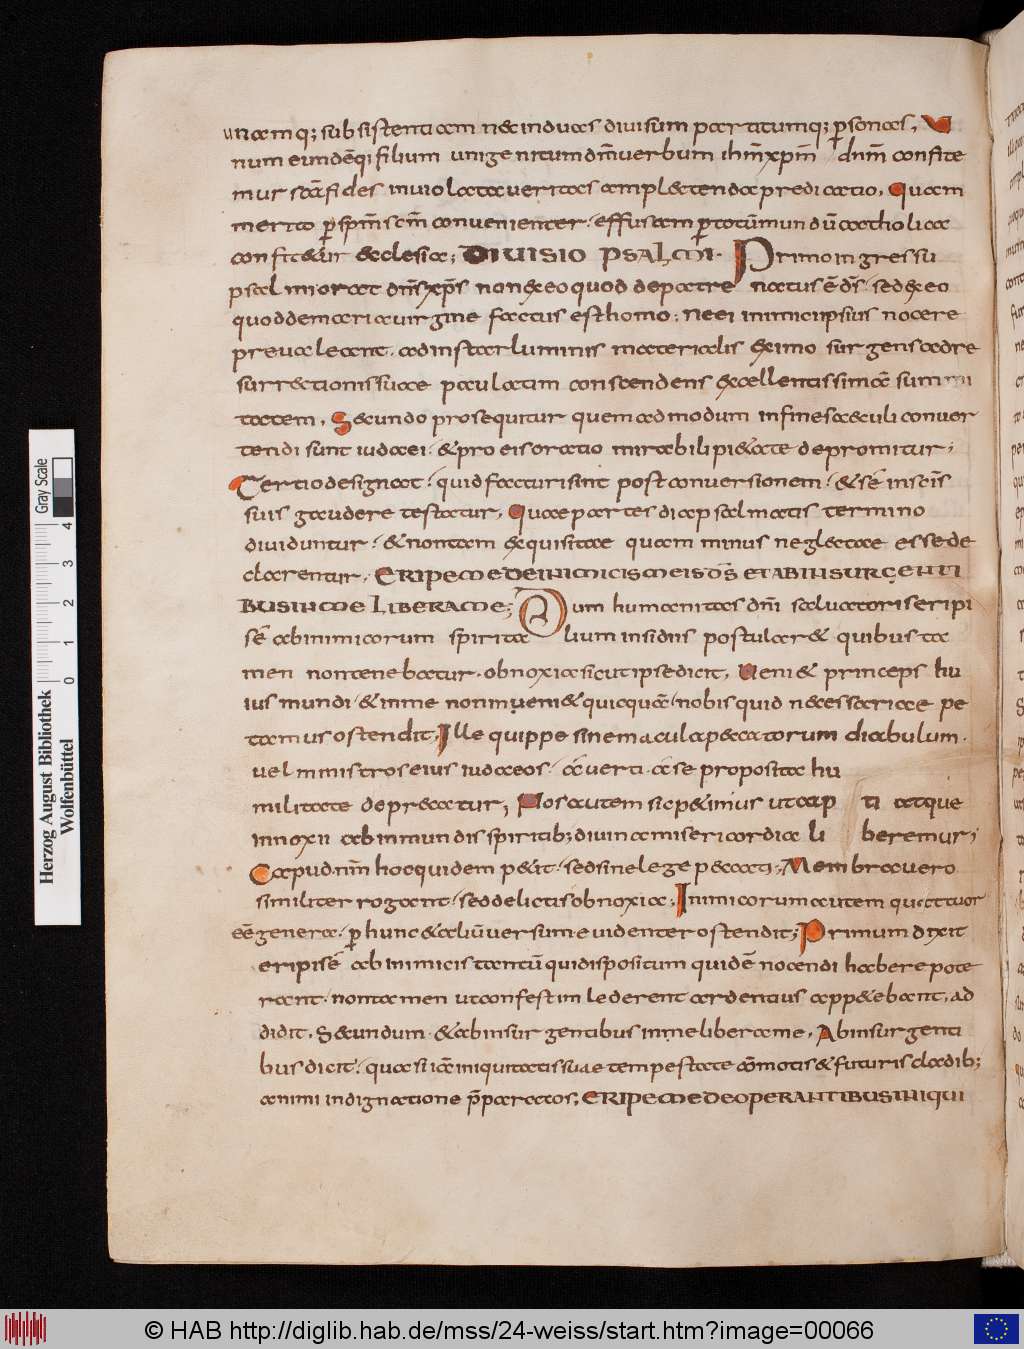 unamq; subsistentiam nec in duas diuisum partitumq; psonas. V
num eundēq; filium unigenitum dm̄ uerbum ihm̄ xpm̄ dnm̄ confite
mur scā fides inuiolata ueritas amplectenda predicatio. Quam
merito p spm̄ scm̄ conuenienter effusam p totū mundū catholica
confitetur ecclesia; DIVISIO PSALMI. Primo ingressu
psalmi orat dn̄s xp̄s non ex eo quod de patre natus ē dī sed ex eo
quod de maria uirgine factus est homo; ne ei inimici ipsius nocere
preualeant. ad instar luminis materialis ex imo surgens ad re
surrectionis suae paulatim conscendens excellentissimā summi
tatem. Secundo prosequitur quemadmodum in fine saeculi conuer
tendi sunt iudaei. & pro eis oratio mirabili pietate depromitur;
Tertio designat quid facturi sint post conuersionem. & sē in scīs
suis gaudere testatur. Quae partes diapsalmatis termino
diuiduntur. & non tam exquisitae quam minus neglectae esse de
clarentur. ERIPE ME DE INIMICIS MEIS DS ET AB INSURGENTI
BUS IN ME LIBERA ME; Dum humanitas dn̄i saluatoris eripi
sē ab inimicorum spirita lium insidiis postularet quibus ta
men non tenebatur obnoxia sicut ipse dicit. Venit princeps hu
ius mundi & in me non inuenit quicquā nobis quid necessariae pe
tamus ostendit. Ille quippe sine macula peccatorum diabulum.
uel ministros eius iudaeos. āuerti. ā se proposita hu
militate deprecatur; Nos autem sic petimus ut cap ti atque
innoxii ab inmundis spiritib; diuina misericordia li beremur;
Caput nrm̄ hoc quidem petit. sed sine lege peccati; Membra uero
similiter rogant. sed delictis obnoxia; Inimicorum autem quattuor
eē genera. p hunc & aliū uersum euidenter ostendit; Primum dixit
eripi sē ab inimicis tantū qui dispositum quidē nocendi habere pote
rant. non tamen ut confestim lederent ardentius appetebant. ad
didit. Secundum. & ab insurgentibus in me libera me. Ab insurgenti
bus dicit. quasi iā iniquitatis suae tempestate cōmotis & futuris cladib;
animi indignatione p̄paratos; ERIPE ME DE OPERANTIBUS INIQUI
Herzog August Bibliothek
Wolfenbüttel
0 1 2 3 4
Gray Scale
© HAB http://diglib.hab.de/mss/24-weiss/start.htm?image=00066